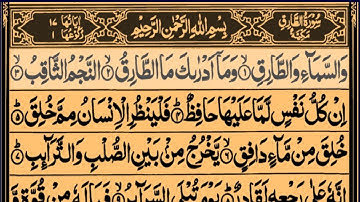 سُوْرَةُ الطَّارِقِ مَكِّيَّةٌ بِسْمِ اللّٰهِ الرَّحْمٰنِ الرَّحِيْمِ اٰيَاتُهَا ١٧ رُكُوْعُهَا ١
وَالسَّمَآءِ وَالطَّارِقِ ۙ١ وَمَآ اَدْرٰىكَ مَا الطَّارِقُ ۙ٢ النَّجْمُ الثَّاقِبُ ۙ٣
اِنْ كُلُّ نَفْسٍ لَّمَّا عَلَيْهَا حَافِظٌ ؕ٤ فَلْيَنْظُرِ الْاِنْسَانُ مِمَّ خُلِقَ ؕ٥
خُلِقَ مِنْ مَّآءٍ دَافِقٍ ۙ٦ يَّخْرُجُ مِنْۢ بَيْنِ الصُّلْبِ وَالتَّرَآئِبِ ؕ٧
اِنَّهٗ عَلٰى رَجْعِهٖ لَقَادِرٌ ؕ٨ يَوْمَ تُبْلَى السَّرَآئِرُ ۙ٩ فَمَا لَهٗ مِنْ قُوَّةٍ وَّ